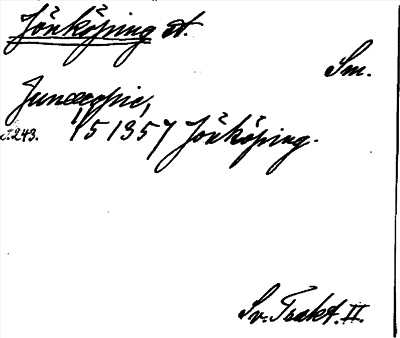 Jönköping st.
Sm.
Junacopie,
s. 243. 1/5 1357 Jönköping.
Sv. Trakt. II.